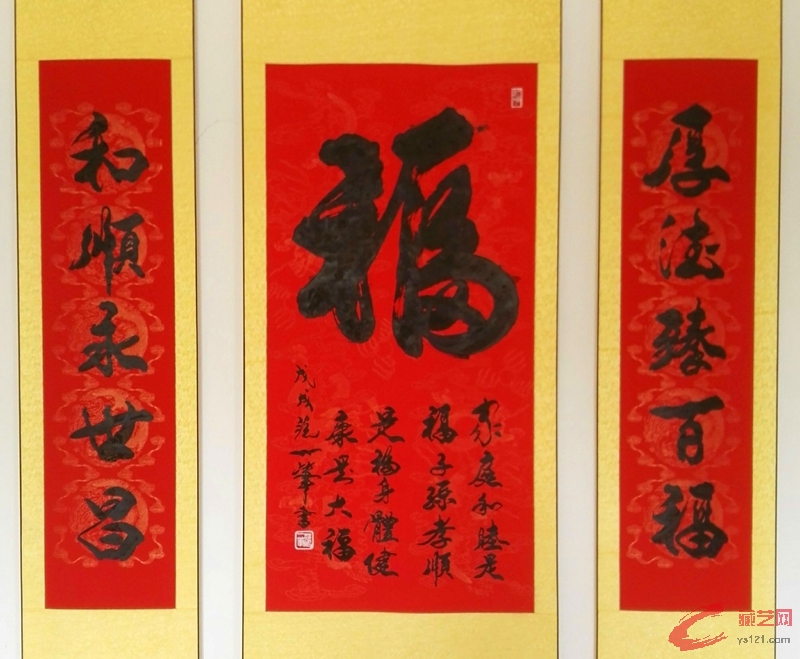 厚德臻百福
福
家庭和睦是
福子孫孝順
是福身體健
康是大福
戊戌范一華書
和順永世昌
藏艺网
ys121.com